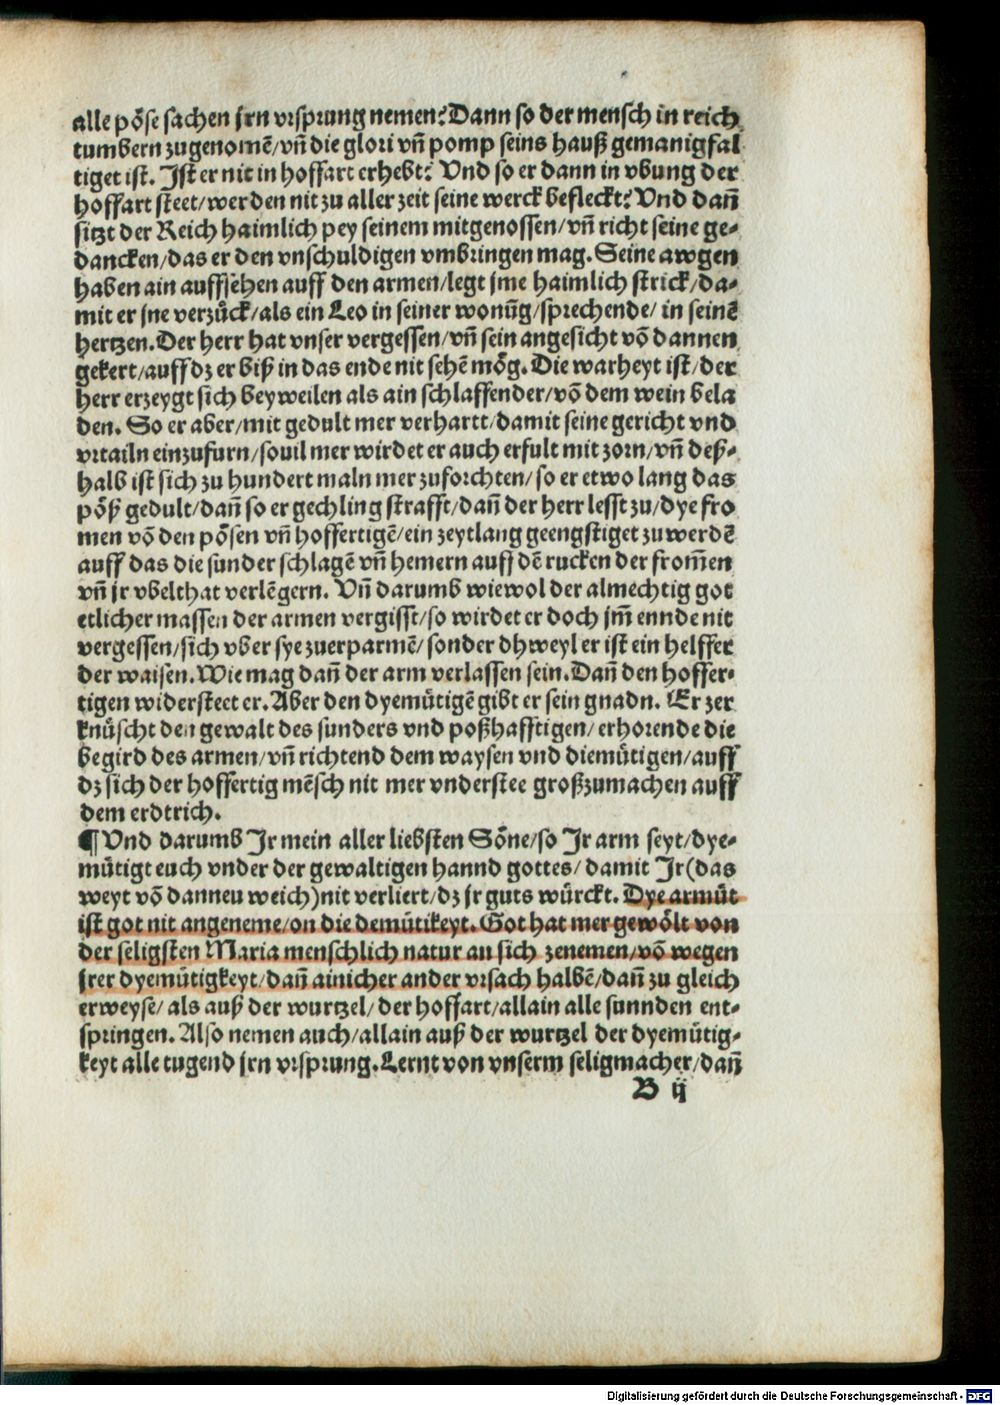 alle pőse sachen jrn vrsprung nemen? Dann so der mensch in reich
tumbern zugenomē/vn̄ die glori vn̄ pomp seins hauß gemanigfal
tiget ist. Ist er nit in hoffart erhebt? Vnd so er dann in vbung der
hoffart steet/werden nit zu aller zeit seine werck befleckt? Vnd dan̄
sitzt der Reich haimlich pey seinem mitgenossen/vn̄ richt seine ge-
dancken/das er den vnschuldigen vmbringen mag. Seine awgen
haben ain auffsehen auff den armen/legt jme haimlich strick/da-
mit er jne verzůck/als ein Leo in seiner wonūg/sprechende/ in seinē
hertzen. Der herr hat vnser vergessen/vn̄ sein angesicht vō dannen
gekert/auff dz er biß in das ende nit sehē mőg. Die warheyt ist/der
herr erzeygt sich beyweilen als ain schlaffender/vō dem wein bela
den. So er aber/mit gedult mer verhartt/damit seine gericht vnd
vrtailn einzufurn/souil mer wirdet er auch erfult mit zorn/vn̄ deß-
halb ist sich zu hundert maln mer zuforchten/so er etwo lang das
pőß gedult/dan̄ so er gechling strafft/dan̄ der herr lesst zu/dye fro
men vō den pősen vn̄ hoffertigē/ein zeytlang geengstiget zu werdē
auff das die sunder schlagē vn̄ hemern auff dē rucken der from̄en
vn̄ jr vbelthat verlēgern. Vn̄ darumb wiewol der almechtig got
etlicher massen der armen vergisst/so wirdet er doch jm̄ ennde nit
vergessen/sich vber sye zuerparmē/sonder dhweyl er ist ein helffer
der waisen. Wie mag dan̄ der arm verlassen sein. Dan̄ den hoffer-
tigen widersteet er. Aber den dyemütigē gibt er sein gnadn. Er zer
knüscht den gewalt des sunders vnd poßhafftigen/erhorende die
begird des armen/vn̄ richtend dem waysen vnd diemütigen/auff
dz sich der hoffertig mēsch nit mer vnderstee großzumachen auff
dem erdtrich.
¶ Vnd darumb Ir mein aller liebsten Sőne/so Ir arm seyt/dye-
mütigt euch vnder der gewaltigen hannd gottes/damit Ir(das
weyt vō danneu weich)nit verliert/dz jr guts würckt. Dye armüt
ist got nit angeneme/on die demütikeyt. Got hat mer gewőlt von
der seligsten Maria menschlich natur an sich zenemen/vō wegen
jrer dyemütigkeyt/dan̄ ainicher ander vrsach halbē/dan̄ zu gleich
erweyse/als auß der wurtzel/der hoffart/allain alle sunnden ent-
springen. Also nemen auch/allain auß der wurtzel der dyemütig-
keyt alle tugend jrn vrsprung. Lernt von vnserm seligmacher/dan̄
B ij
Digitalisierung gefördert durch die Deutsche Forschungsgemeinschaft - DFG